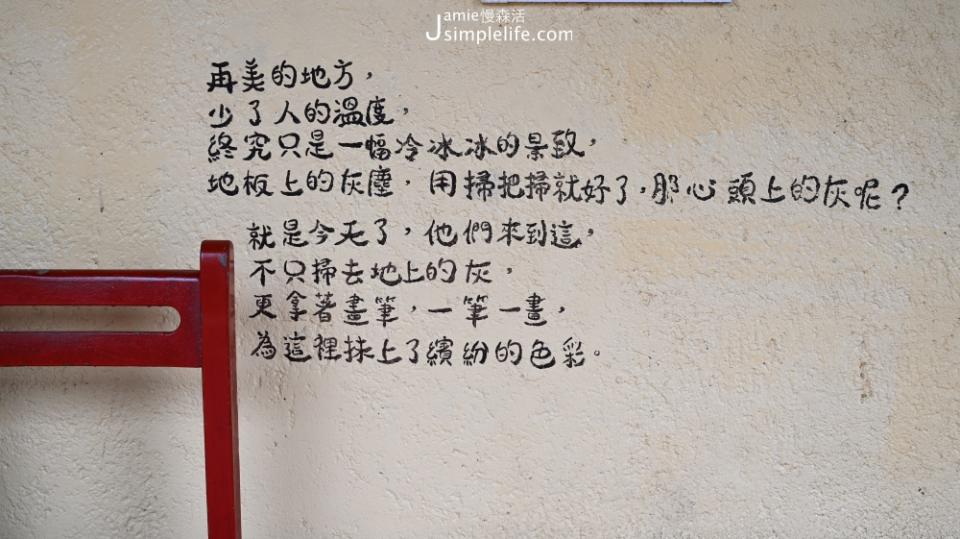 Jamie慢森活
Jsimplelife.com
再美的地方，
少了人的溫度，
終究只是一幅冷冰冰的景致，
地板上的灰塵，用掃把掃就好了，那心頭上的灰呢？
就是今天了，他們來到這，
不只掃去地上的灰，
更拿著畫筆，一筆一畫，
為這裡抹上了繽紛的色彩。